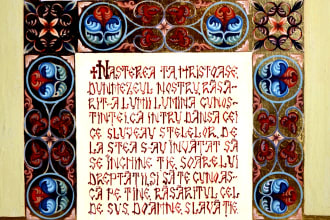 +NASTEREA TA HRISTOASE,
DUMNEZEUL NOSTRU, RASA-
RIT-A LUMII LUMINA CUNOS-
TINTEI, CA INTRU DANSA CEI
CE SLUJEAU STELELOR, DE
LA STEA S-AU INVATAT SA
SE INCHINE TIE, SOARELUI
DREPTATII, SI SA TE CUNOAS-
CA PE TINE, RASARITUL CEL
DE SUS, DOAMNE, SLAVA TIE